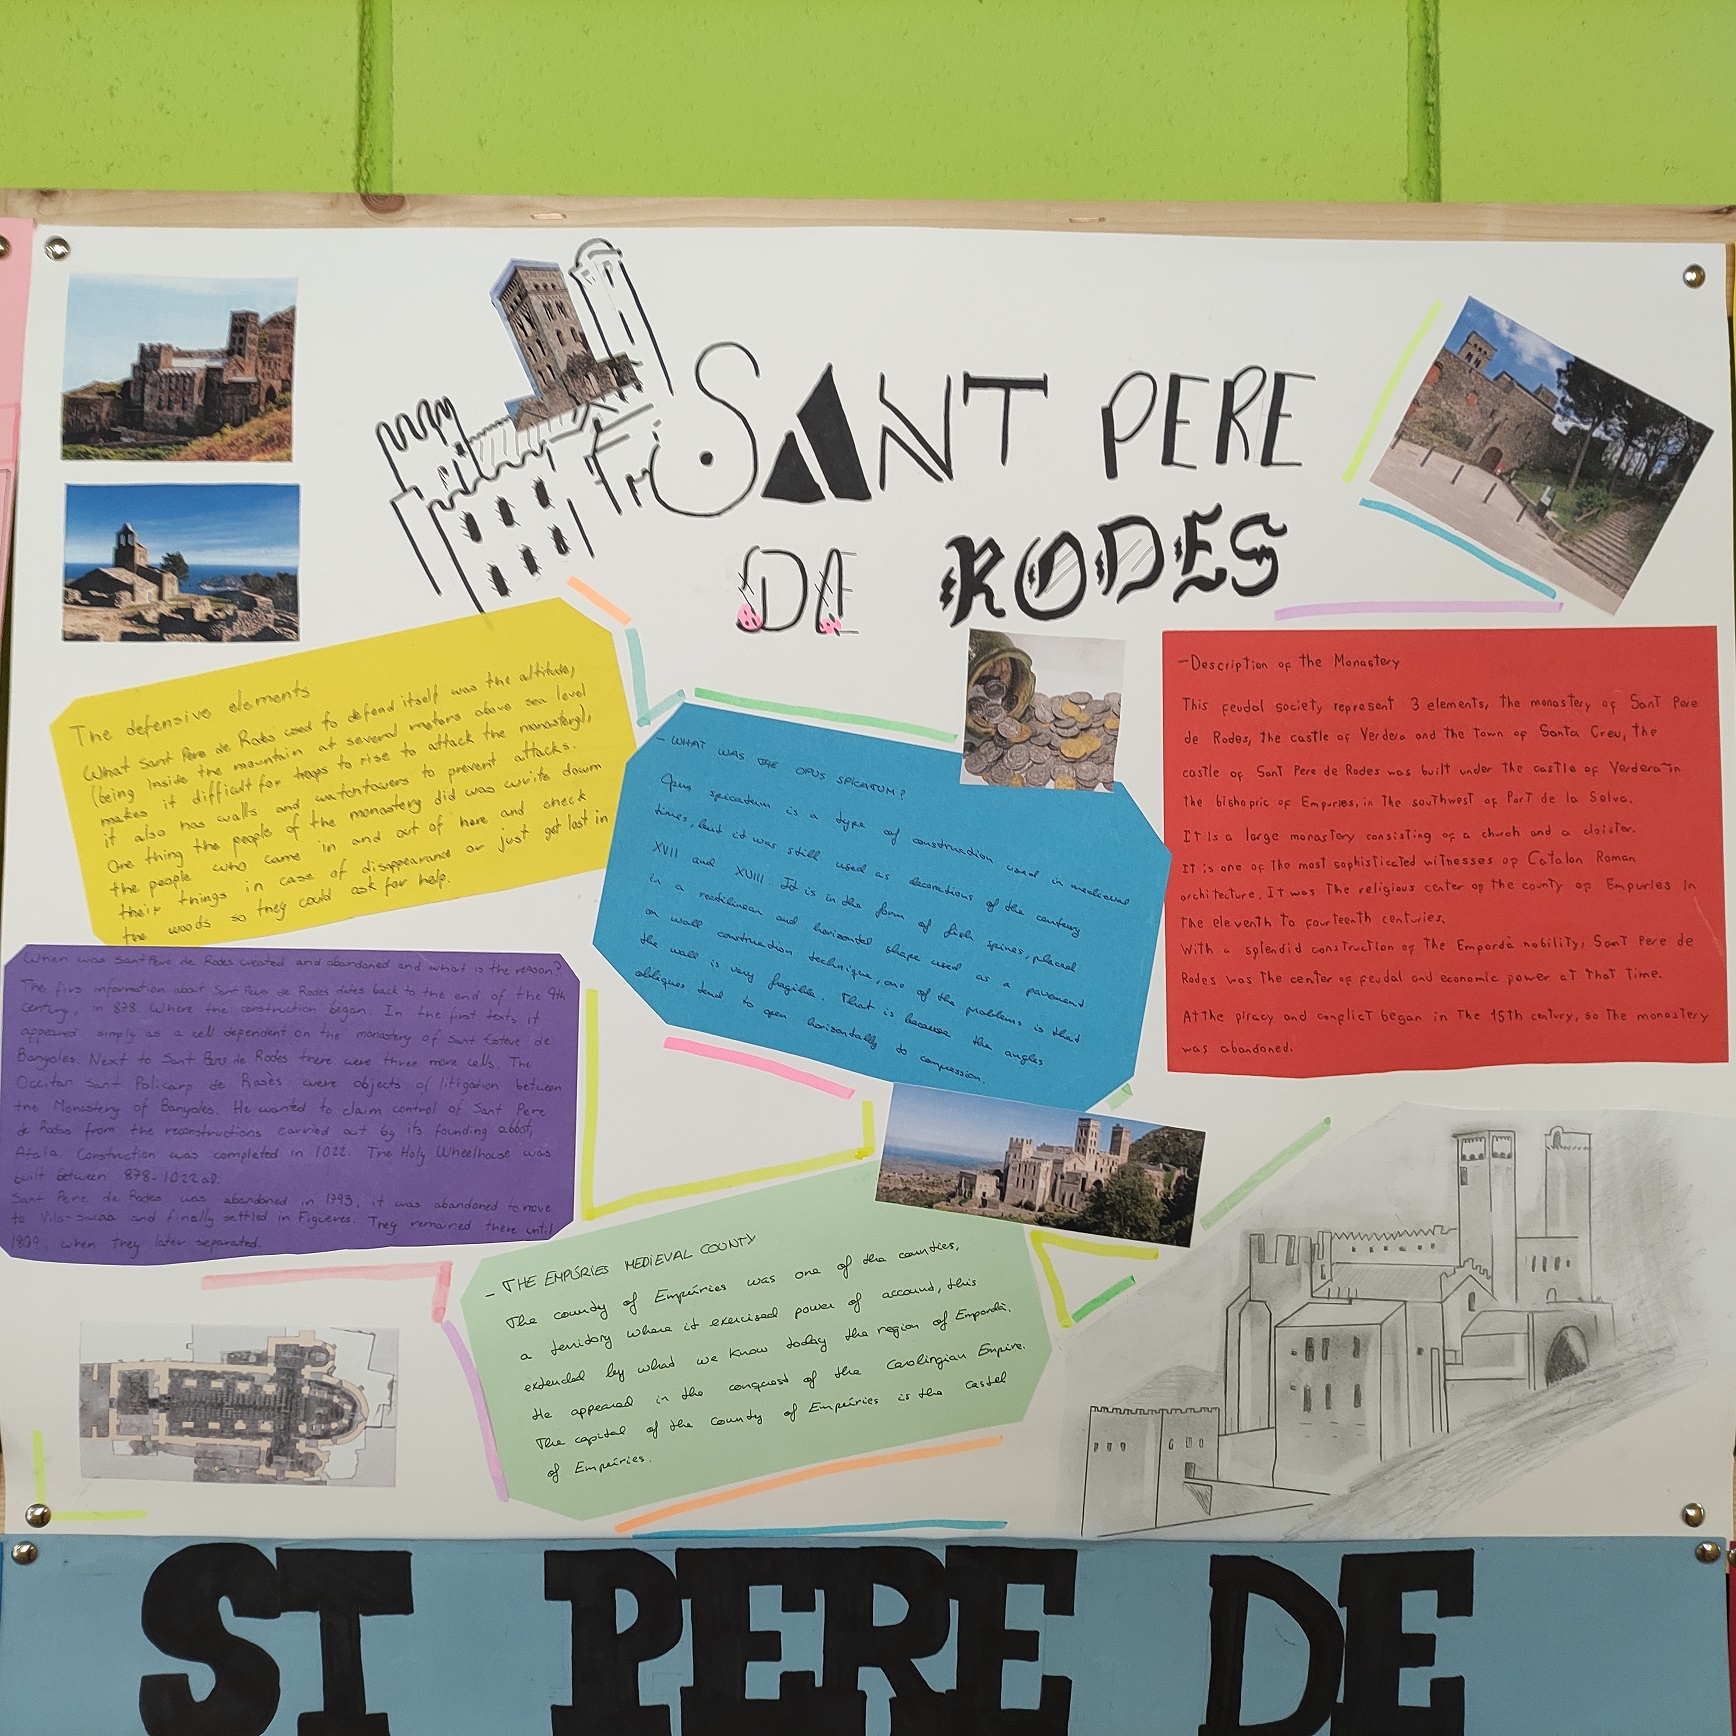 SANT PERE
DE RODES
The defensive elements
What Sant Pere de Rodes used to defend itself was the altitude,
(being inside the mountain at several meters above sea level
makes it difficult for troops to rise to attack the monastery),
it also has walls and watchtowers to prevent attacks.
One thing the people of the monastery did was write down
the people who came in and out of here and check
their things in case of disappearance or just get lost in
the woods so they could ask for help.
- WHAT WAS THE OPUS SPICATUM?
Opus spicatum is a type of construction used in medieval
times, but it was still used as decorations of the century
XVII and XVIII. It is in the form of fish spines, placed
in a rectilinear and horizontal shape used as a pavement
or wall construction technique, one of the problems is that
the wall is very fragile. That is because the angles
obliques tend to open horizontally to compression.
-Description of the Monastery
This feudal society represent 3 elements, the monastery of Sant Pere
de Rodes, the castle of Verdera and the town of Santa Creu, the
castle of Sant Pere de Rodes was built under the castle of Verdera in
the bishopric of Empuries, in the southwest of Port de la Selva.
It Is a large monastery consisting of a church and a cloister.
It is one of the most sophisticated witnesses of Catalan Roman
architecture. It was the religious center of the county of Empuries in
the eleventh to fourteenth centuries.
With a splendid construction of the Empordà nobility, Sant Pere de
Rodes was the center of feudal and economic power at that time.
At the piracy and conflict began in the 15th century, so the monastery
was abandoned.
When was Sant Pere de Rodes created and abandoned and what is the reason?
The firs information about Sant Pere de Rodes dates back to the end of the 9th
century, in 878. Where the construction began. In the first texts it
appeared simply as a cell dependent on the monastery of Sant Esteve de
Banyoles. Next to Sant Pere de Rodes there were three more cells. The
Occitan Sant Policarp de Rasès were objects of litigation between
the Monastery of Banyoles. He wanted to claim control of Sant Pere
de Rodes from the reconstructions carried out by its founding abbot,
Atala. Construction was completed in 1022. The Holy Wheelhouse was
built between 878-1022 aD.
Sant Pere de Rodes was abandoned in 1793, it was abandoned to move
to Vila-sacra and finally settled in Figueres. They remained there until
1809, when they later separated.
- THE EMPÚRIES MEDIEVAL COUNTY
The county of Empúries was one of the counties,
a territory where it exercised power of account, this
extended by what we know today the region of Empordà.
He appeared in the conquest of the Carolingian Empire.
The capital of the county of Empúries is the castel
of Empúries.
ST PERE DE